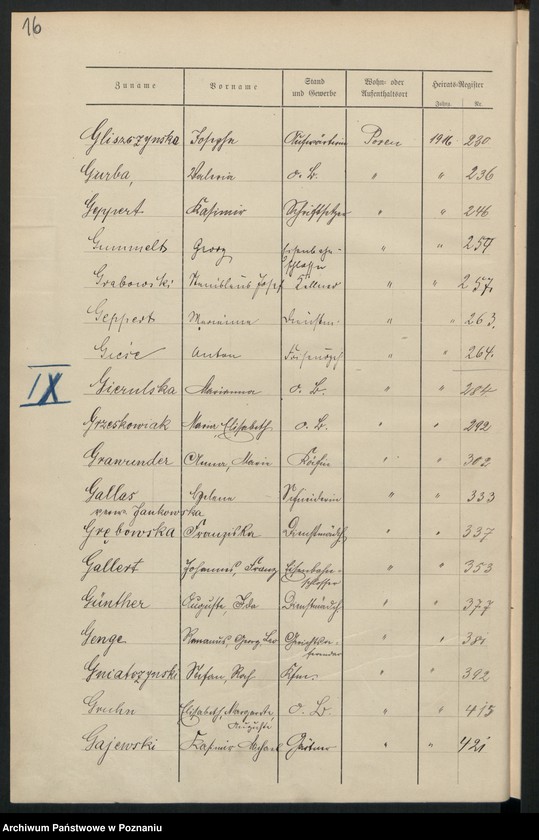 16
Zuname Vorname Stand und Gewerbe Wohn- oder Aufenthaltsort Heirats-Register
Jahrg. Nr.
Gliszczynska Josepha Aufwärterin Posen 1916 230
Gurba, Valeria o. B. " " 236
Geppert Kasimir Schriftsetzer " " 246
Gummelt Georg Eisenbahn- " " 254
schlosser
Grabowski Stanislaus Josef Kellner " " 257.
Geppert Marianna " " 263.
Anton " " 264.
IX
Gierulska Marianna o. B. " " 284
Grzeskowiak Maria Elisabeth o. B. " " 292
Grawunder Anna, Marie Köchin " " 302
Gallas Helena Schneiderin " " 333
verw. Jankowska
Grębowska Franziska Dienstmädch. " " 337
Gallert Johannes, Franz Eisenbahn- " " 353
schlosser
Günther Auguste, Ida Dienstmädch. " " 377
Genge Romanus, Georg, Leo Gerichtsre- " " 381
ferendar
Gniatczynski Stefan, Roch Kfm. " " 392
Gruhn Elisabeth, Margarete, o. B. " " 415
Auguste
Gajewski Kasimir Michael Gärtner " " 421
Archiwum Państwowe w Poznaniu